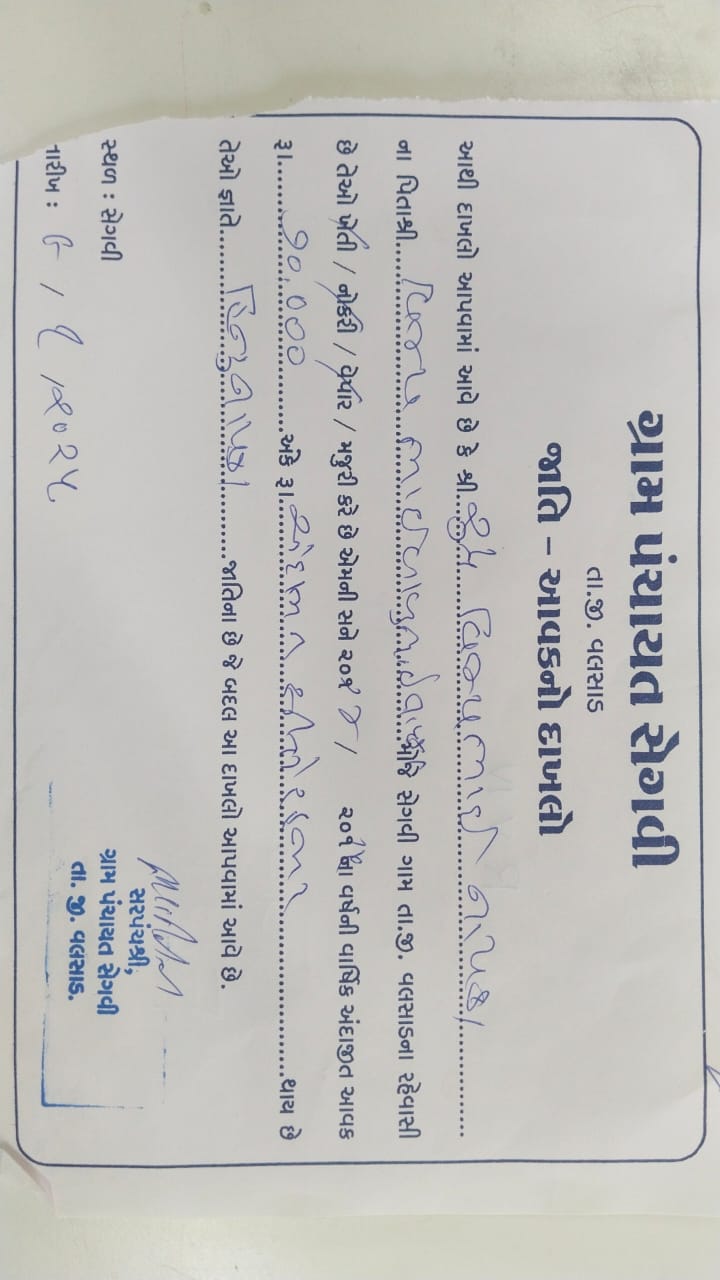 ગ્રામ પંચાયત સેગવી
તા.જી. વલસાડ
જાતિ - આવકનો દાખલો
આથી દાખલો આપવામાં આવે છે કે શ્રી.....
ના પિતાશ્રી..... વિજય ..... સેગવી ગામ તા.જી. વલસાડના રહેવાસી
છે તેઓ ખેતી / નોકરી / વેપાર / મજુરી કરે છે એમની સને ૨૦૧ / ૨૦૧ ના વર્ષની વાર્ષિક અંદાજીત આવક
રૂા..... ૭૦,૦૦૦ .....અંકે રૂા..... હજાર .....થાય છે
તેઓ જ્ઞાતે..... હિન્દુ .....જાતિના છે જે બદલ આ દાખલો આપવામાં આવે છે.
સ્થળ : સેગવી
તારીખ : ૯ / ૨૦૨૫
સરપંચશ્રી,
ગ્રામ પંચાયત સેગવી
તા. જી. વલસાડ.